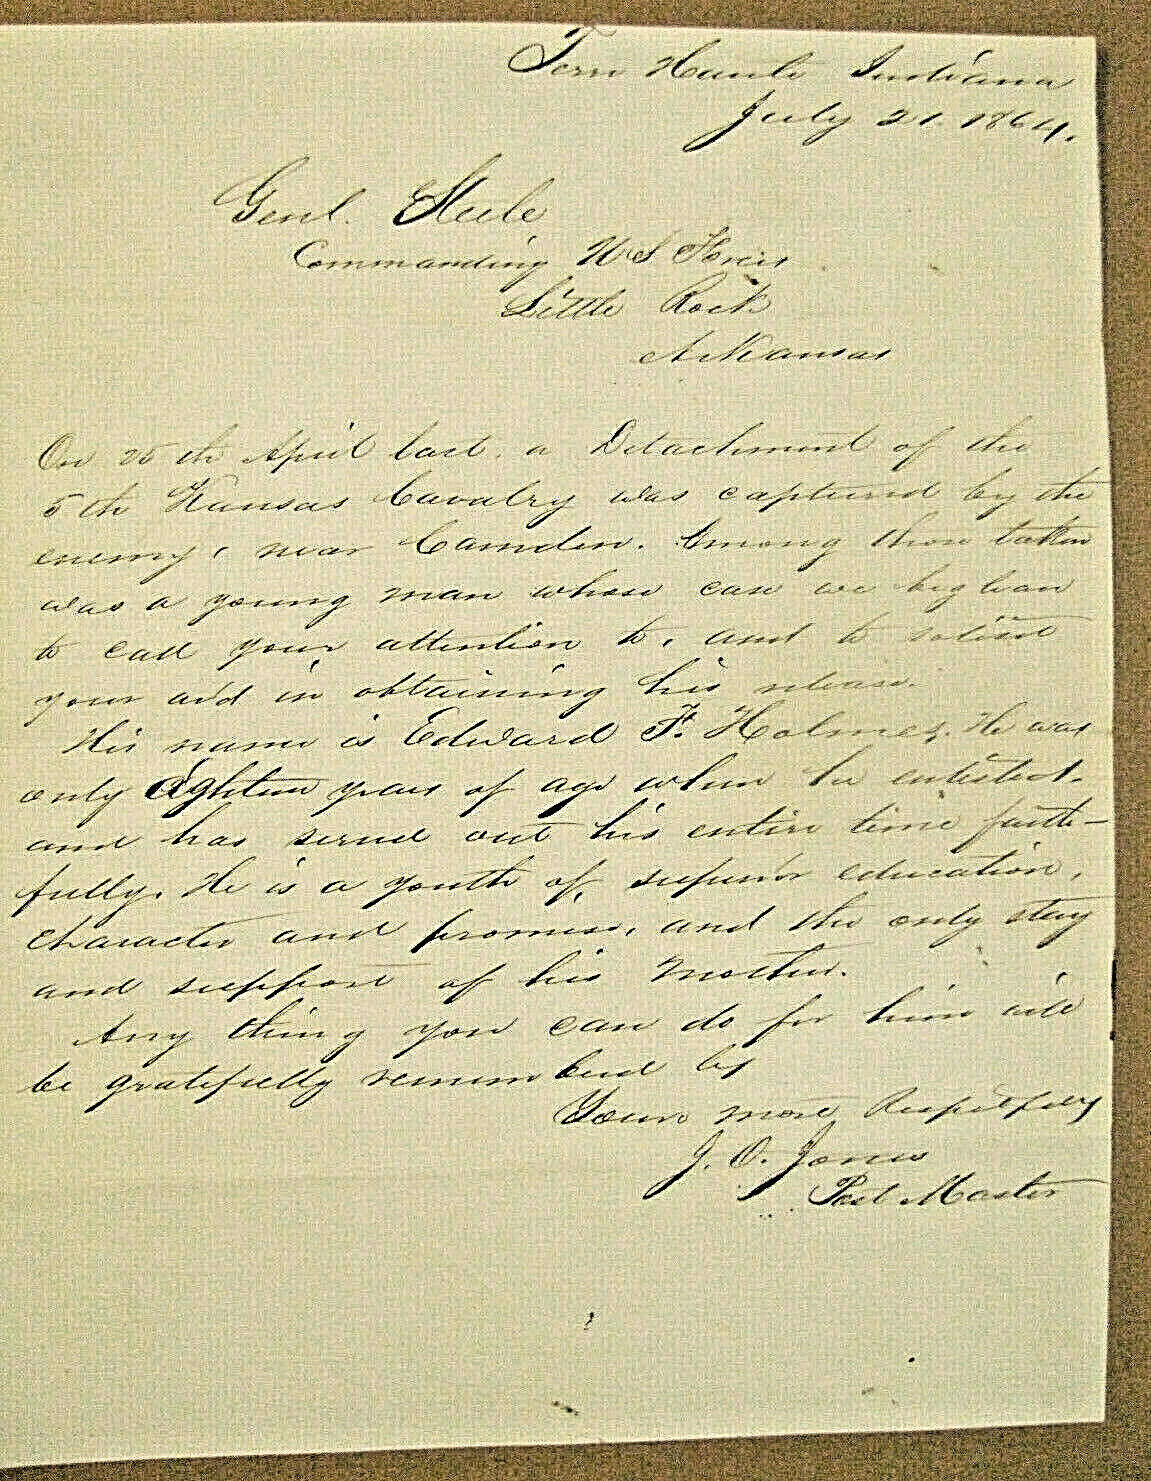 Terre Haute Indiana
July 21. 1864.
Genl. Steele
Commanding U S Forces
Little Rock
Arkansas
On 25th April last. a Detachment of the
5th Kansas Cavalry was captured by the
enemy, near Camden. Among those taken
was a young man whose case we beg lean
to call your attention to, and to solicit
your aid in obtaining his release.
His name is Edward F. Holmes. He was
only Eighteen years of age when he enlisted.
and has served out his entire time faith-
fully. He is a youth of superior education,
character and promise, and the only stay
and support of his Mother.
Any thing you can do for him will
be gratefully remembered by
Yours most Respectfully
J. O. Jones
Post Master